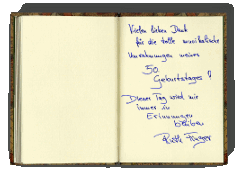 Vielen lieben Dank
für die tolle musikalische
Umrahmungen meines
50
Geburtstages!
Dieser Tag wird mir
immer in
Erinnerungen
bleiben
Ruth